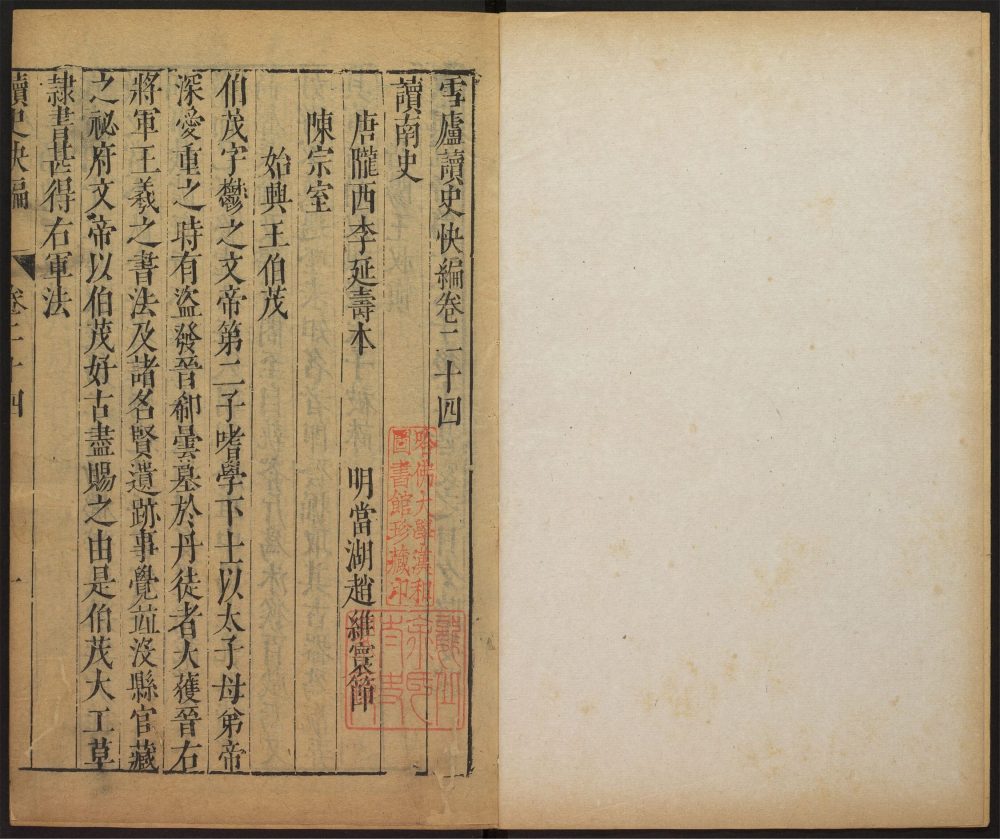 雪廬讀史快編卷二十四
讀南史
唐隴西李延壽本 明當湖趙維寰節
陳宗室
始興王伯茂
伯茂字鬱之文帝第二子嗜學下士以太子母弟帝
深愛重之時有盜發晉郗曇墓於丹徒者大獲晉右
將軍王羲之書法及諸名賢遺跡事覺並沒縣官藏
之祕府文帝以伯茂好古盡賜之由是伯茂大工草
隸書甚得右軍法
讀史快編 卷二十四 一
哈佛大學漢和
圖書館珍藏印